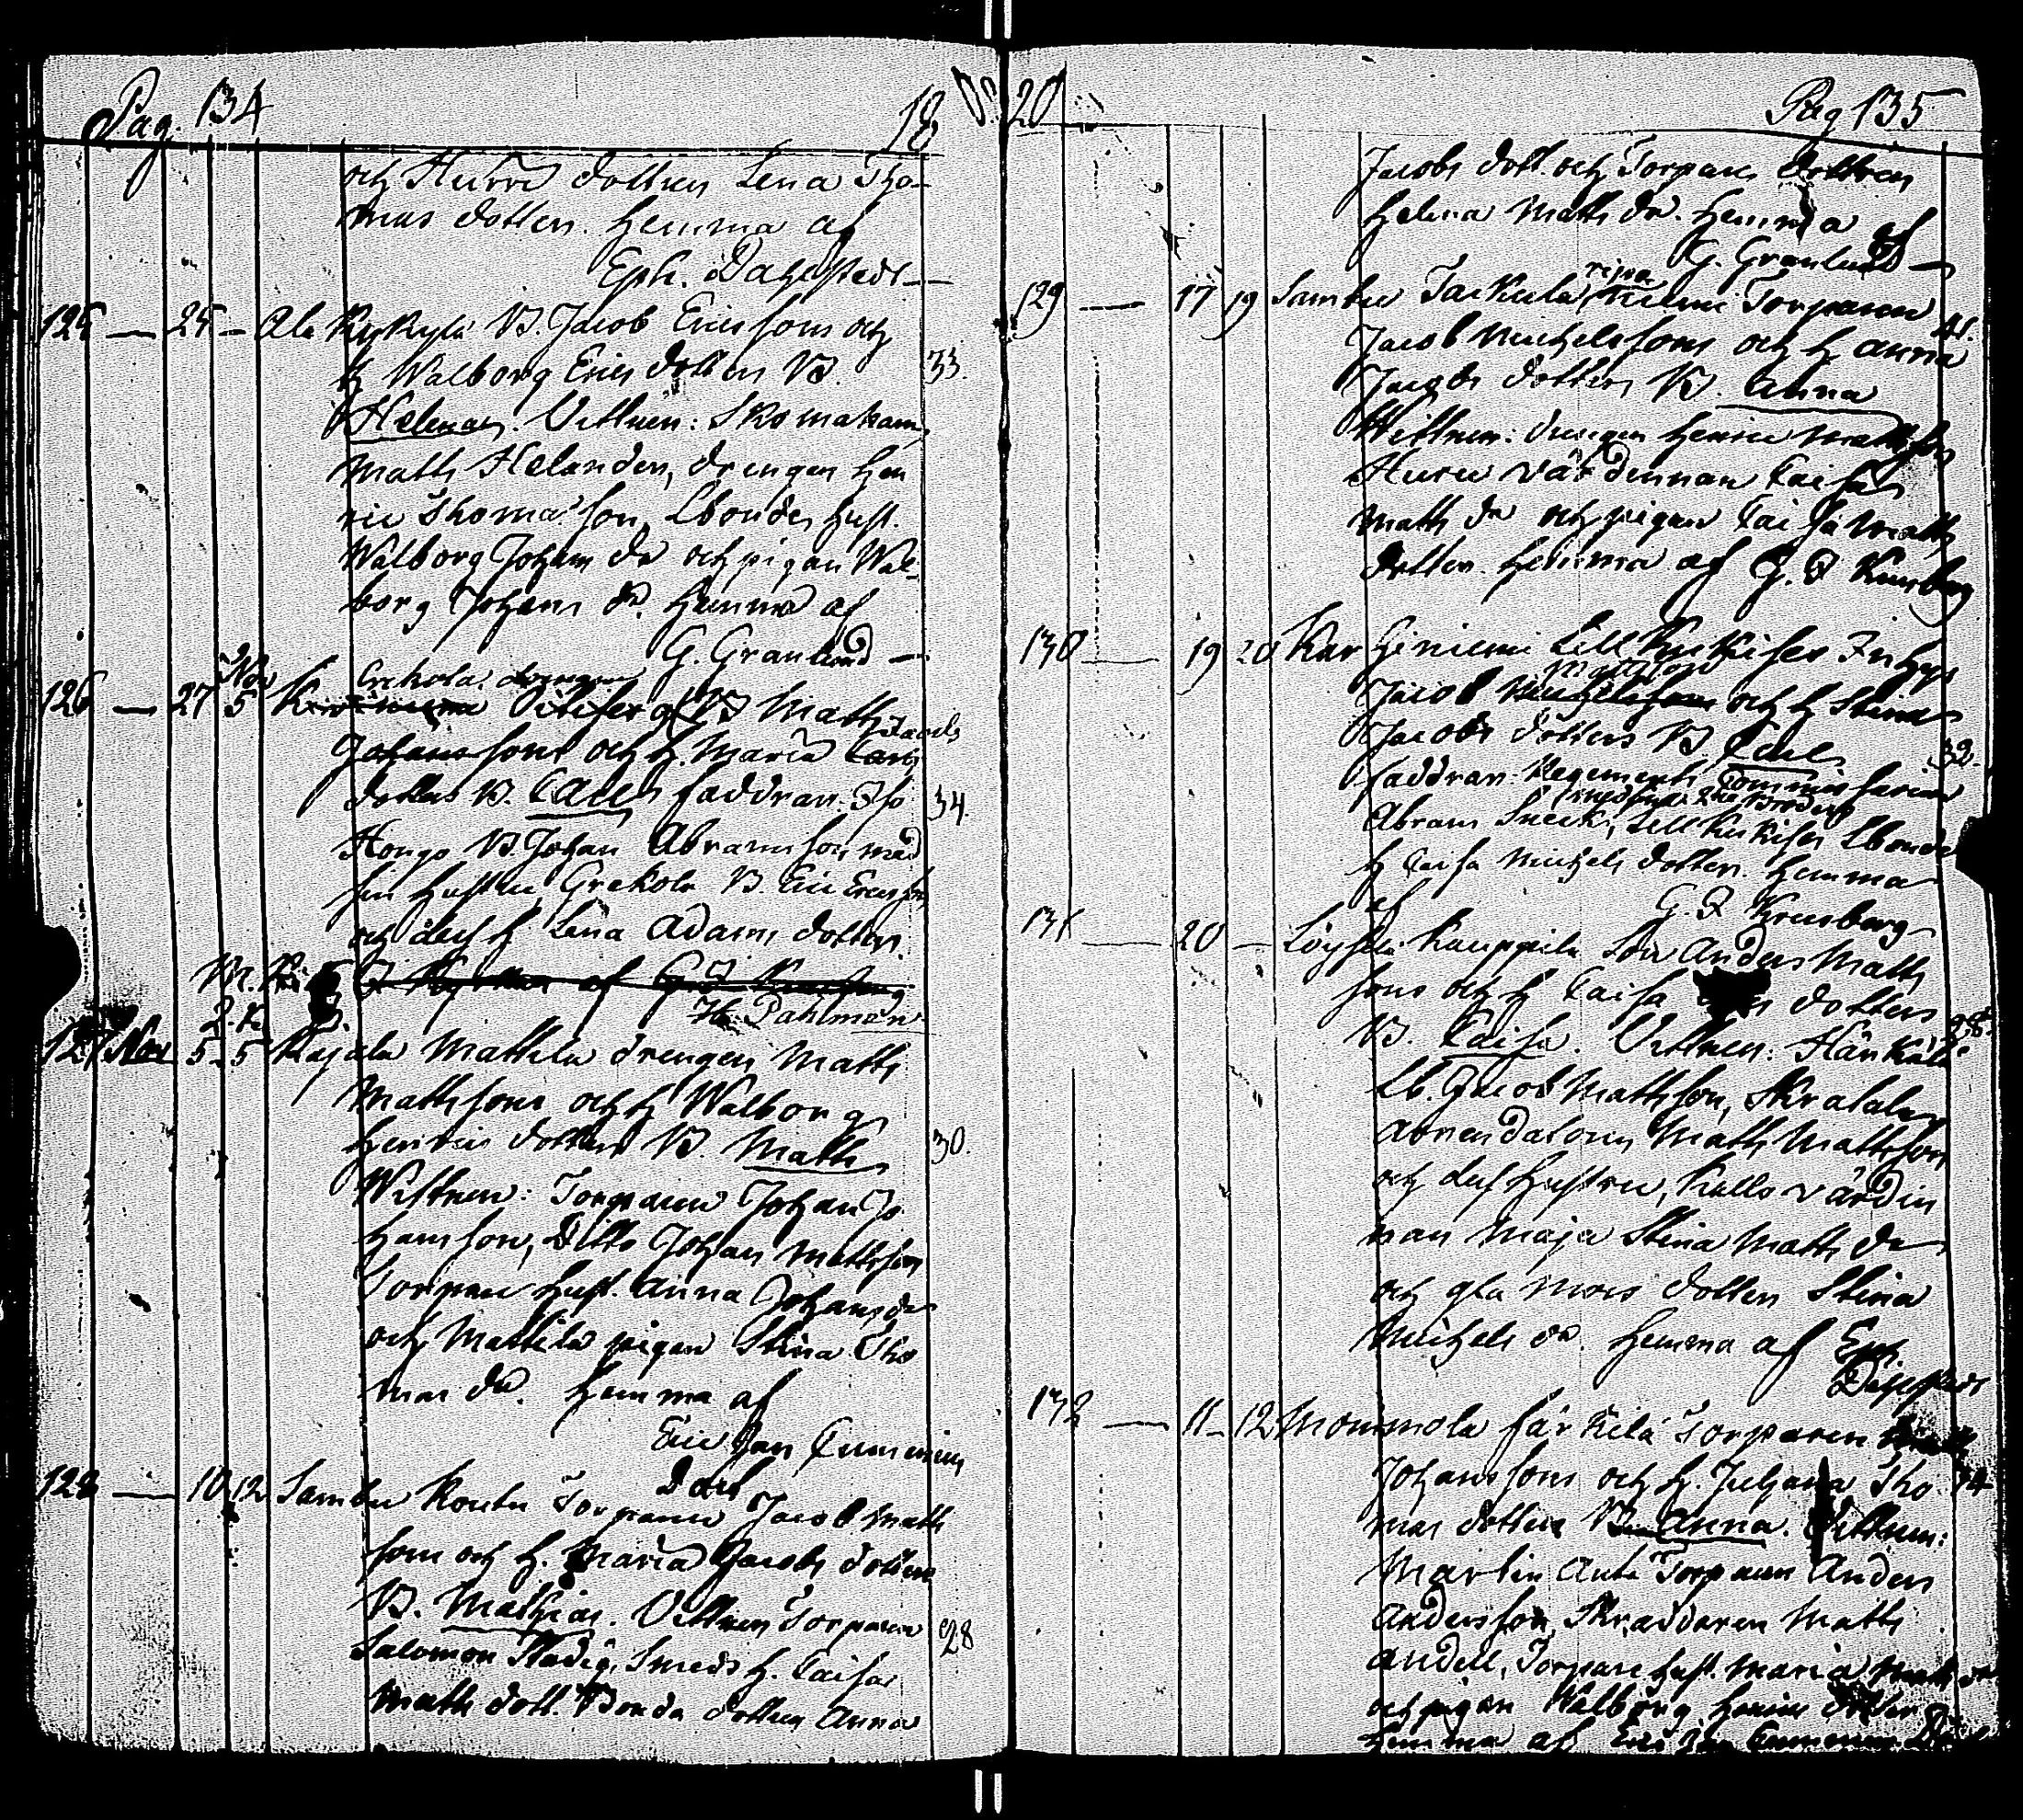 Pag. 134
18
och Huru dottren Lena Tho-
mas dotter. Hemma af
Eph. Dahlstedt
125 — 25 – Ala Kykylä B. Jacob Ericssons och
h Walborg Erics dotters B. 33.
Helena. Vittnen: Skomakaren
Matts Helander, drengen Hen
ric Thomasson, Lbondes hust.
Walborg Johans dr och pigan Wal-
borg Johans dr. Hemma af
G. Granlund —
Nov Crekola drengen
126 — 27 5 B Matts
Jacobs
Johanssons och h. Maria
dotters B. Cajsa faddrar. Iso 34.
Hongo B. Johan Abramsson med
sin hustru, Grekola B. Eric Ericsson
och dess h Lena Adams dotter.
H. Pahlman
127 Nov 5 5 Kajala Mattila drengen Matts
Mattssons och h Walborg
Henrics dotters B. Matts 30.
Wittnen: Torparen Johan Jo
hansson, Ditto Johan Mattsson
Torpare hust. Anna Johans dr
och Mattila pigan Stina Tho
mas dr. Hemma af
Eric Joh Tummenius
128 — 10 12 Sambu Koutu Torparen Jacob Matts
sons och h. Maria Jacobs dotters
B. Mathias. Vittnen Torparen 28
Salomon Stadig, Smeds h. Caisa
Matts dott. Bonde dottren Anna
20
Pag 135
Jacobs dott. och Torpare dottren
Helena Matts dr. Hemma af
G. Granlund —
129 — 17 19 Sambu Jackula Torparen
Jacob Michelssons och h Anna 41.
Jacobs dotters B. Anna
Wittnen: drengen Henric Mattsson
Huru värdinnan Caisa
Matts dr och pigan Caisa Matts
dotter. Hemma af G. I Krusberg
130 — 19 20 Karhiniemi Lill Kuckiser Inhys
Mattsson
Jacob och h Stina
Jacobs dotters B. 32.
faddrar: Regements Commissarien
Abram Sneck, Lill Kuckiser Lbonde
h Caisa Michels dotter. Hemma
af G. I Krusberg
131 — 20 — Löysälä Kauppila Son Anders Matts
sons och h Caisa dotters
B. Caisa. Vittnen: Hänkälä 28.
Lb. Jacob Mattsson, Skralala
Arrendatorn Matts Mattsson
och dess hustru, Kallo värdin
nan Maja Stina Matts dr
och gla mors dotter Stina
Michels dr. Hemma af Eph.
Dahlstedt
132 — 11 – 12 Mommola Färkilä Torparen Matts
Johanssons och h. Juliana Tho 34
mas dotters B. Anna. Vittnen:
Martin Anti Torparen Anders
Andersson, Skräddaren Matts
Andell, Torpare hust. Maria Matts dr
och pigan Walborg Henrics dotter
Hemma af Eric Joh Tummenius